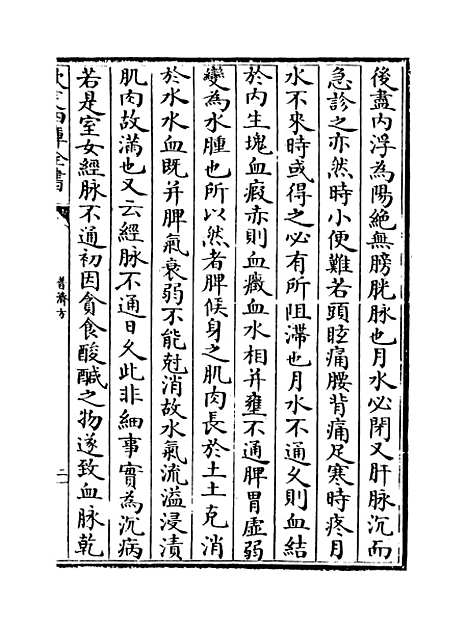 後盡内浮為陽絶無膀胱脉也月水必閉又肝脉沉而
急診之亦然時小便難若頭眩痛腰背痛足寒時疼月
水不來時或得之必有所阻滯也月水不通乆則血結
於内生塊血瘕赤則血癥血水相并壅不通脾胃虛弱
變為水腫也所以然者脾候身之肌肉長於土土克消
於水水血既并脾氣衰弱不能尅消故水氣流溢浸漬
肌肉故滿也又云經脉不通日乆此非細事實為沉病
若是室女經脉不通初因貪食酸醎之物遂致血脉乾
欽定四庫全書
普濟方
二